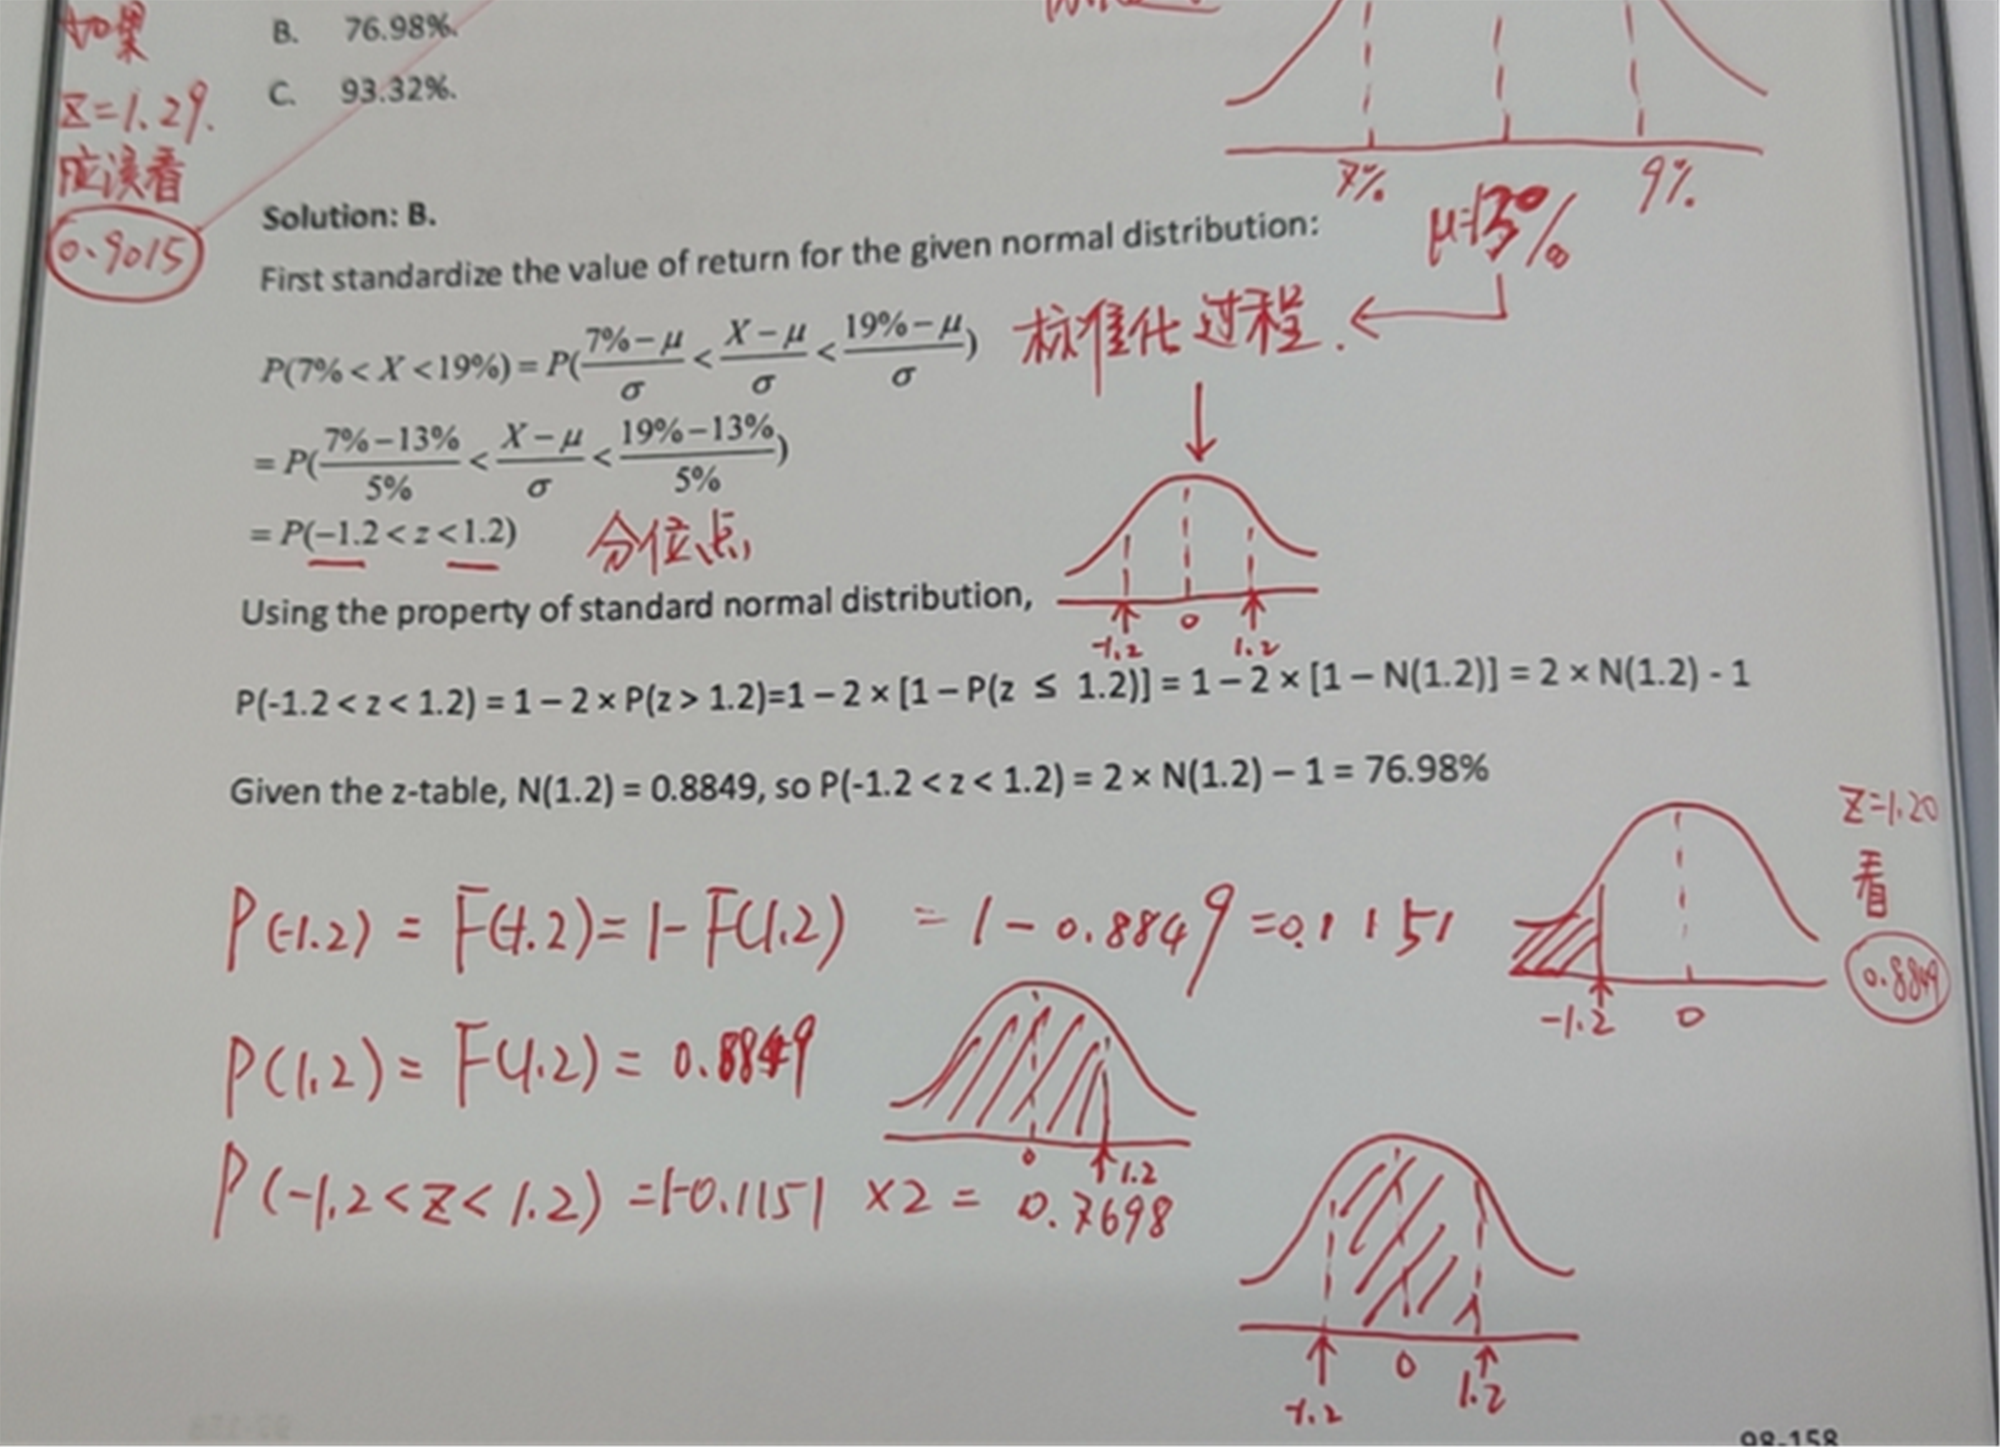 如果
B. 76.98%.
Z=1.29.
C. 93.32%.
应该看
0.9015
7%
9%
μ=13%
Solution: B.
First standardize the value of return for the given normal distribution:
P(7% < X < 19%) = P((7% − μ)/σ < (X − μ)/σ < (19% − μ)/σ)
标准化过程.
= P((7% − 13%)/5% < (X − μ)/σ < (19% − 13%)/5%)
= P(−1.2 < z < 1.2)
分位点
Using the property of standard normal distribution,
-1.2 0 1.2
P(-1.2 < z < 1.2) = 1 – 2 × P(z > 1.2)=1 – 2 × [1 – P(z ≤ 1.2)] = 1 – 2 × [1 – N(1.2)] = 2 × N(1.2) - 1
Given the z-table, N(1.2) = 0.8849, so P(-1.2 < z < 1.2) = 2 × N(1.2) – 1 = 76.98%
Z=1.20
看
0.8849
P(-1.2) = F(-1.2) = 1- F(1.2) = 1 - 0.8849 = 0.1151
-1.2 0
P(1.2) = F(1.2) = 0.8849
0 1.2
P(-1.2<Z<1.2) =1-0.1151 ×2 = 0.7698
-1.2 0 1.2
98-158